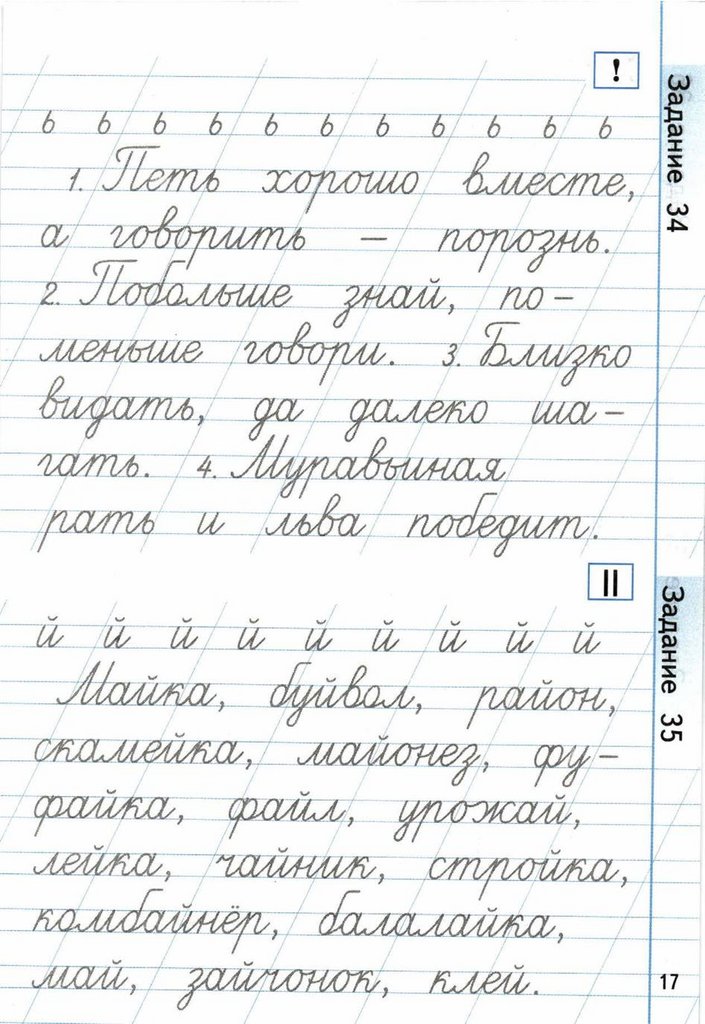 !
Задание 34
ь ь ь ь ь ь ь ь ь ь ь
1. Петь хорошо вместе,
а говорить – порознь.
2. Побольше знай, по-
меньше говори. 3. Близко
видать, да далеко ша-
гать. 4. Муравьиная
рать и льва победит.
||
Задание 35
й й й й й й й й й
Майка, буйвол, район,
скамейка, майонез, фу-
файка, файл, урожай,
лейка, чайник, стройка,
комбайнёр, балалайка,
май, зайчонок, клей.
17